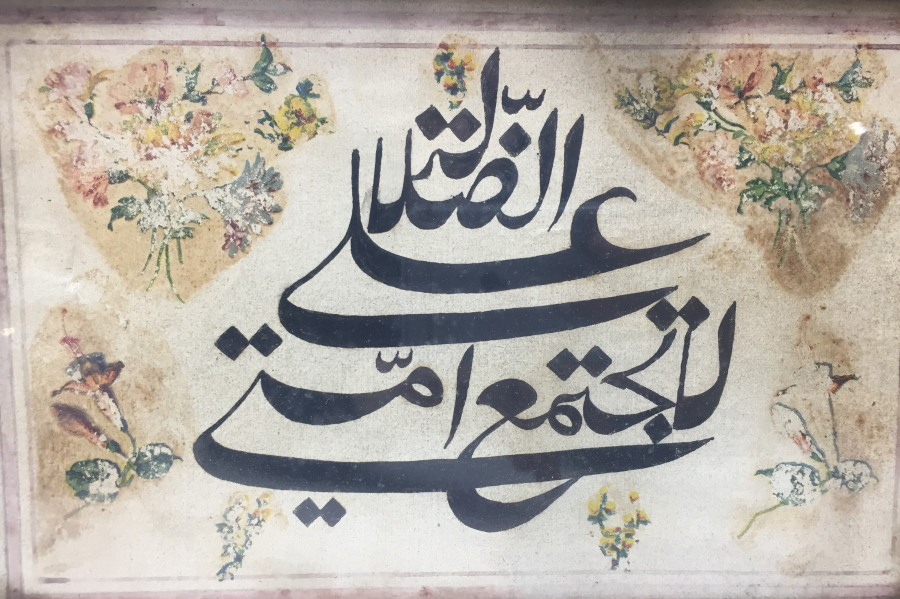 لا تجتمع امّتي
على الضّلالة